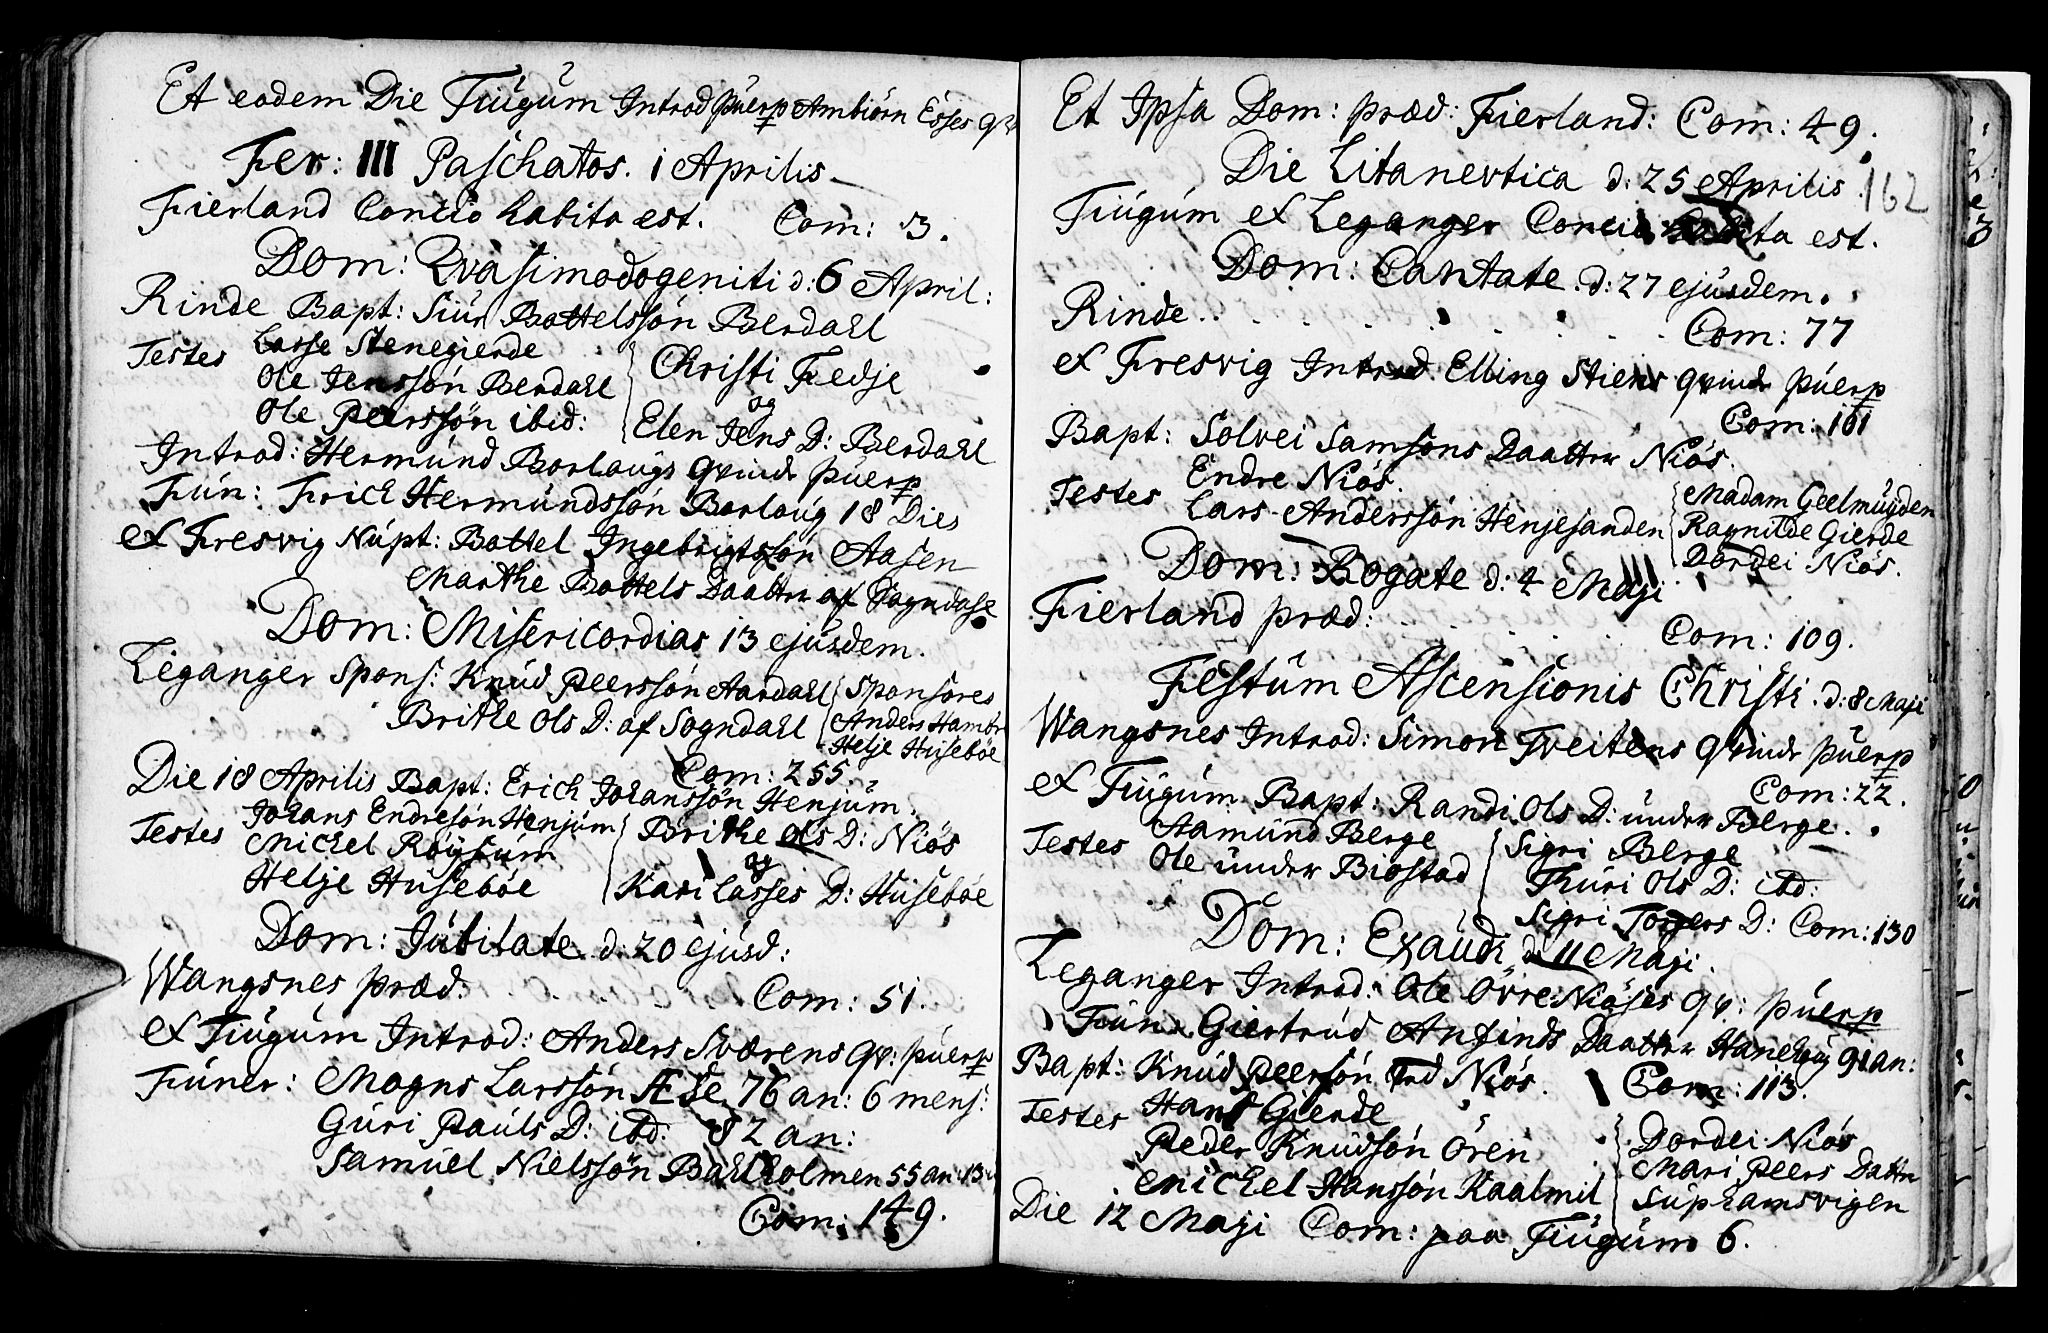 Et eodem Die Fiúgúm Introd púerp Ambiörn Esses qv
Fer: III Paschatos. 1 Aprilis
Fierland Concio habita est. Com: 3.
Dom: Qvasimodogeniti d: 6 April:
Rinde Bapt: Siúr Bottelssön Berdahl
Testes Lasse Stenegierde
Ole Jenssön Berdahl
Ole Peerssön ibid:
Christi Fedje
og
Elen Jens D: Berdahl
Introd: Hermúnd Borlaúgs qvinde púerp
Fún: Erich Hermúndssön Borlaúg 18 Dies
et Fresvig Núpt: Bottel Ingebrigtssön Aasen
Marthe Bottels Daatter af Sogndahl
Dom: Misericordias 13 ejúsdem.
Leganger Spons: Knúd Peerssön Aardahl
Brithe Ols D: af Sogndahl
Sponsores
Anders Hamre
Helje Húseböe
Com: 255.
Die 18 Aprilis Bapt: Erich Johanssön Henjúm
Testes Johans Endresön Henjúm
Michel Röysúm
Helje Húseböe
Brithe Ols D: Niös
og
Kari Lasses D: Húseböe
Dom: Júbilate d: 20 ejúsd:
Wangsnes præd: Com: 51.
et Fiúgúm Introd: Anders Sværens qv: púerp
Fúner: Mogns Larssön Æse 76 an: 6 mens:
Gúri Paúls D: ibd: 82 an:
Samúel Nielssön Bahlholmen 55 an: 13
Com: 149.
Et Ipsa Dom: præd: Fierland: Com: 49.
Die Litanevtica d: 25 Aprilis
162
Fiúgúm et Leganger Concio habita est.
Dom: Cantate d: 27 ejúsdem.
Rinde . . . . . Com: 77
et Fresvig Introd Elling Stiens qvinde púerp
Com: 101
Bapt: Solvei Samsons Daatter Niös.
Testes Endre Niös.
Lars Anderssön Henjesanden
Madam Geelmúyden
Ragnilde Gierde
Dordei Niös.
Dom: Rogate d: 4 Maji
Fierland præd: . . . . Com: 109.
Festúm Ascensionis Christi. d: 8 Maji
Wangsnes Introd: Simon Tveitens qvinde púerp
Com: 22.
et Fiúgúm Bapt: Randi Ols D: únder Berge.
Testes Aamúnd Berge
Ole únder Biöstad
Sigri Berge
Thúri Ols D: ibd:
Sigri Torgers D: Com: 130
Dom: Exaúdi d: 11 Maji.
Leganger Introd: Ole Övre Niöses qv: púerp
Fún: Giertrúd Anfinds Daatter Hanehoúg 91 an:
Bapt: Knúd Peersön Niös. Com: 113.
Testes Hans Gierde
Peder Knúdsön Ören
Michel Hanssön Kaalmil
Dordei Niös
Mari Peers Dattr
Suphamsvigen
Die 12 Maji Com: paa Fiúgúm 6.